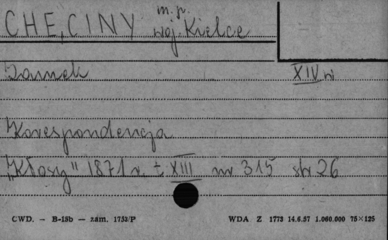 CHĘCINY m.p. woj. Kielce
Zamek XIV w
Korespondencja
"Kłosy" 1871 r. t XIII nr 315 str 26
CWD. — B-15b — zam. 1753/P WDA Z 1773 14.6.57 1.000.000 75×125